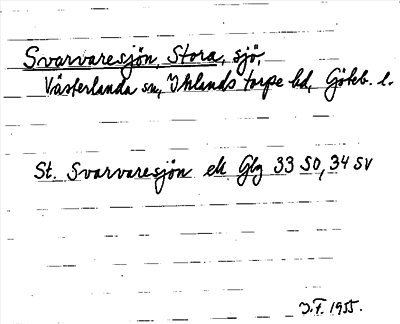 Svarvaresjön, Stora, sjö,
Västerlanda sn, Inlands torpe hd, Göteb. l.
St. Svarvaresjön ek Glg 33 SO, 34 SV
J.F. 1955.